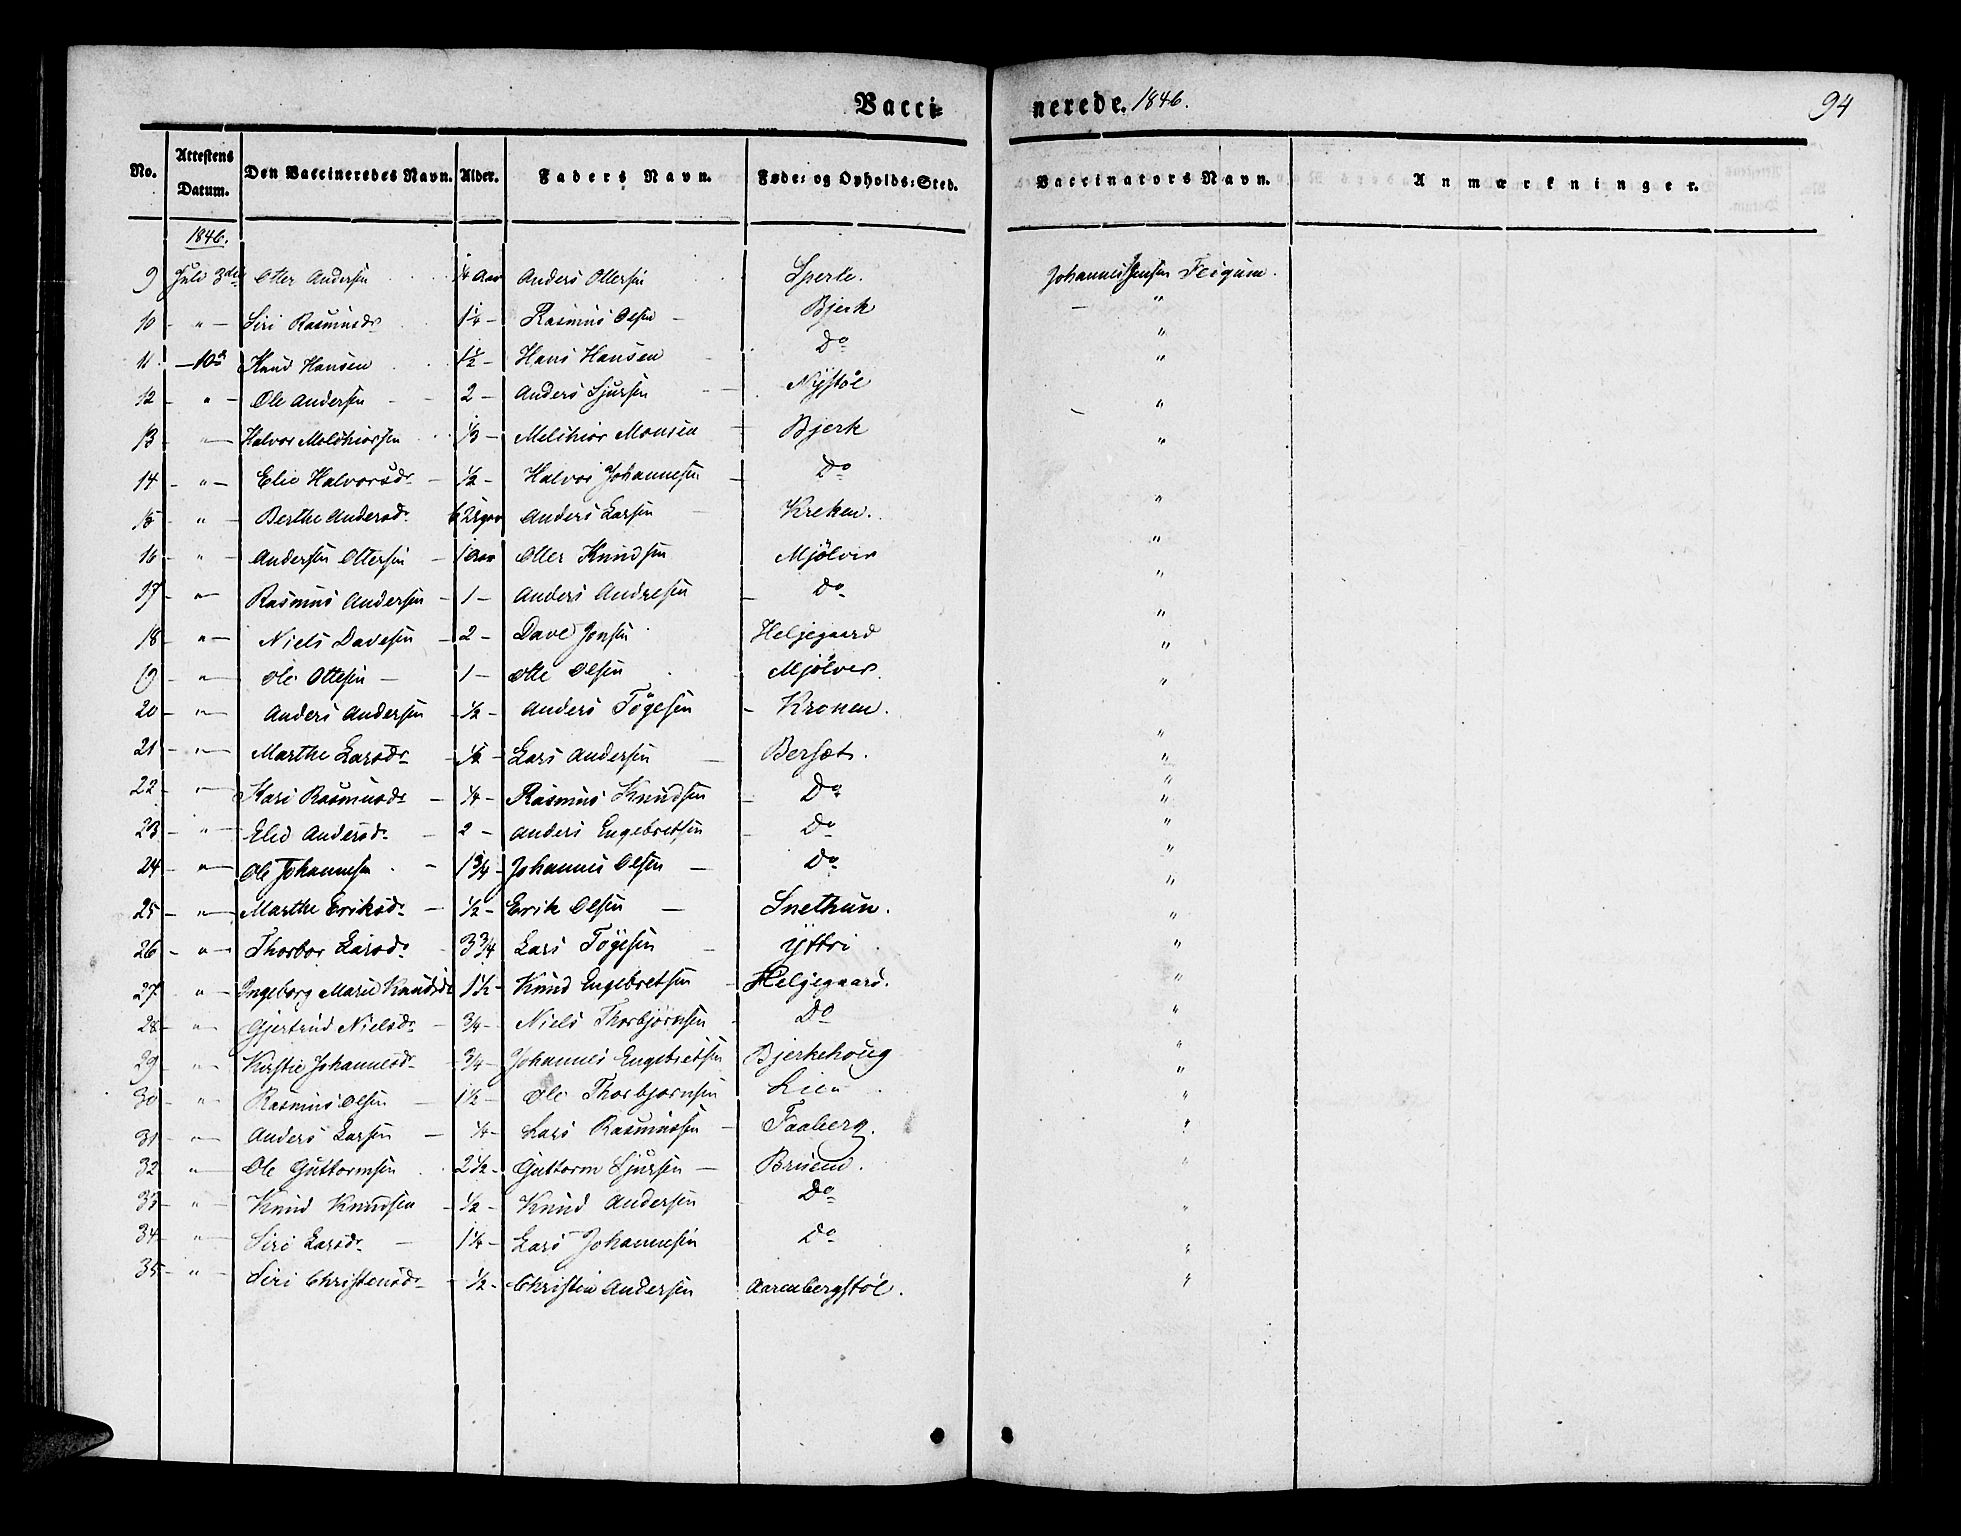 Vacci- nerede. 1846. 94
No. Attestens Datum. Den Vaccineredes Navn. Alder. Faders Navn. Føde- og Opholds-Sted. Vaccinators Navn. Anmærkninger.
1846.
9 Juli 3die Otter Andersen 1/4 Aar Anders Ottersen Sperle. Johannes Jensen Feigum.
10 - " - Siri Rasmusdr 1 1/4 - Rasmus Olsen - Bjerk "
11. - 10de Knud Hansen 1 1/2 - Hans Hansen Do "
12 - " - Ole Andersen - 2 - Anders Sjursen - Nystøl "
13 - " - Halvor Melchiorsen 1/3 - Melchior Monsen - Bjerk "
14 - " - Elie Halvorsdr - 1/2 - Halvor Johannesen - Do "
15 - " - Berthe Andersdr 6 Anders Larsen - Kreken. "
16 - " - Andersen Ottersen - 1 Aar Otter Knudsen Mjölver "
17 - " - Rasmus Andersen - 1 - Anders Andresen - Do "
18 - " - Niels Davesen - 2 - Dave Jonsen Heljegaard "
19 - " - Ole Ottesen - 1 - Otte Olsen Mjölver. "
20 - " - Anders Andersen - 1/2 - Anders Tögesen - Kronen. "
21 - " - Marthe Larsdr - Lars Andersen - Bersæt. "
22 - " - Kari Rasmusdr - 1/4 - Rasmus Knudsen - Do "
23 - " - Elie Andersdr - 2 - Anders Engebretsen - Do "
24 - " - Ole Johannesen - 1 3/4 - Johannes Olsen - Do "
25 - " - Marthe Eriksdr - 1/2 - Erik Olsen - Snethun. "
26 - " - Thorbor Larsdr - 3 3/4 - Lars Tögesen - Yttri "
27 - " - Ingeborg Marie Knudsdr 1 1/2 - Knud Engebretsen - Heljegaard. "
28 - " - Gjertrud Nielsdr - 3/4 - Niels Thorbjörnsen - Do "
29 - " - Kirstie Johannesdr - 3/4 - Johannes Engebretsen Bjerkehoug "
30 - " - Rasmus Olsen - 1 1/2 - Ole Thorbjornsen Lien "
31 - " - Anders Larsen - 1/4 - Lars Rasmussen - Faaberg. "
32 - " - Ole Guttormsen 2 1/2 - Guttorm Sjursen - Bruem. "
33 - " - Knud Knudsen - 1/2 - Knud Andersen Do "
34 - " - Siri Larsdr - 1 1/4 - Lars Johannesen Do "
35 - " - Siri Christensdr - 1/2 - Christen Andersen Aarenbergstøl. "